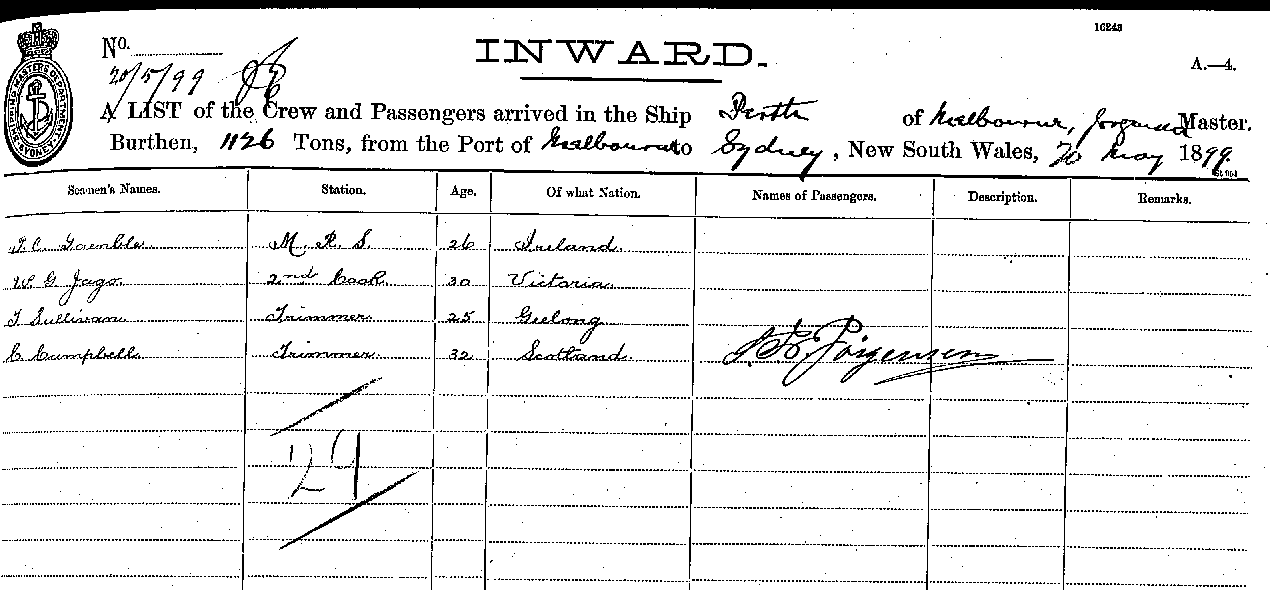 16243
No.
INWARD.
A.—4.
20/5/99
A LIST of the Crew and Passengers arrived in the Ship Perth of Melbourne, Jorgensen Master.
Burthen, 1126 Tons, from the Port of Melbourne to Sydney, New South Wales, 20 May 1899.
Seamen's Names. Station. Age. Of what Nation. Names of Passengers. Description. Remarks.
Gamble M. R. S. 26 Ireland
W G Jago. 2nd Cook 30 Victoria
T Sullivan Trimmer 25 Geelong
C Campbell Trimmer 32 Scotland Jörgensen
29